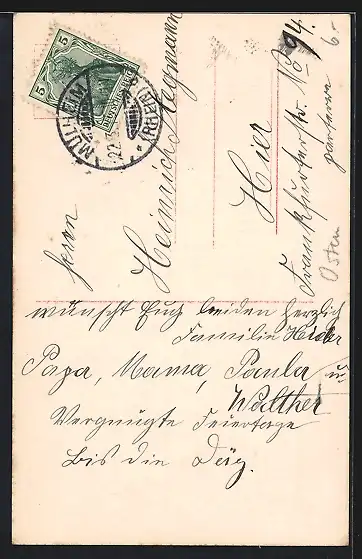 5 5
DEUTSCHES REICH
MÜLHEIM (RHEIN)
22
Herrn
Heinrich Hegmann
Hier
Frankfurterstr. No 94.
parterre
6.-
Osten
wünscht Euch beiden herzlich
Familie
Papa, Mama, Paula u.
Walther
Vergnügte Feiertage
Bis die